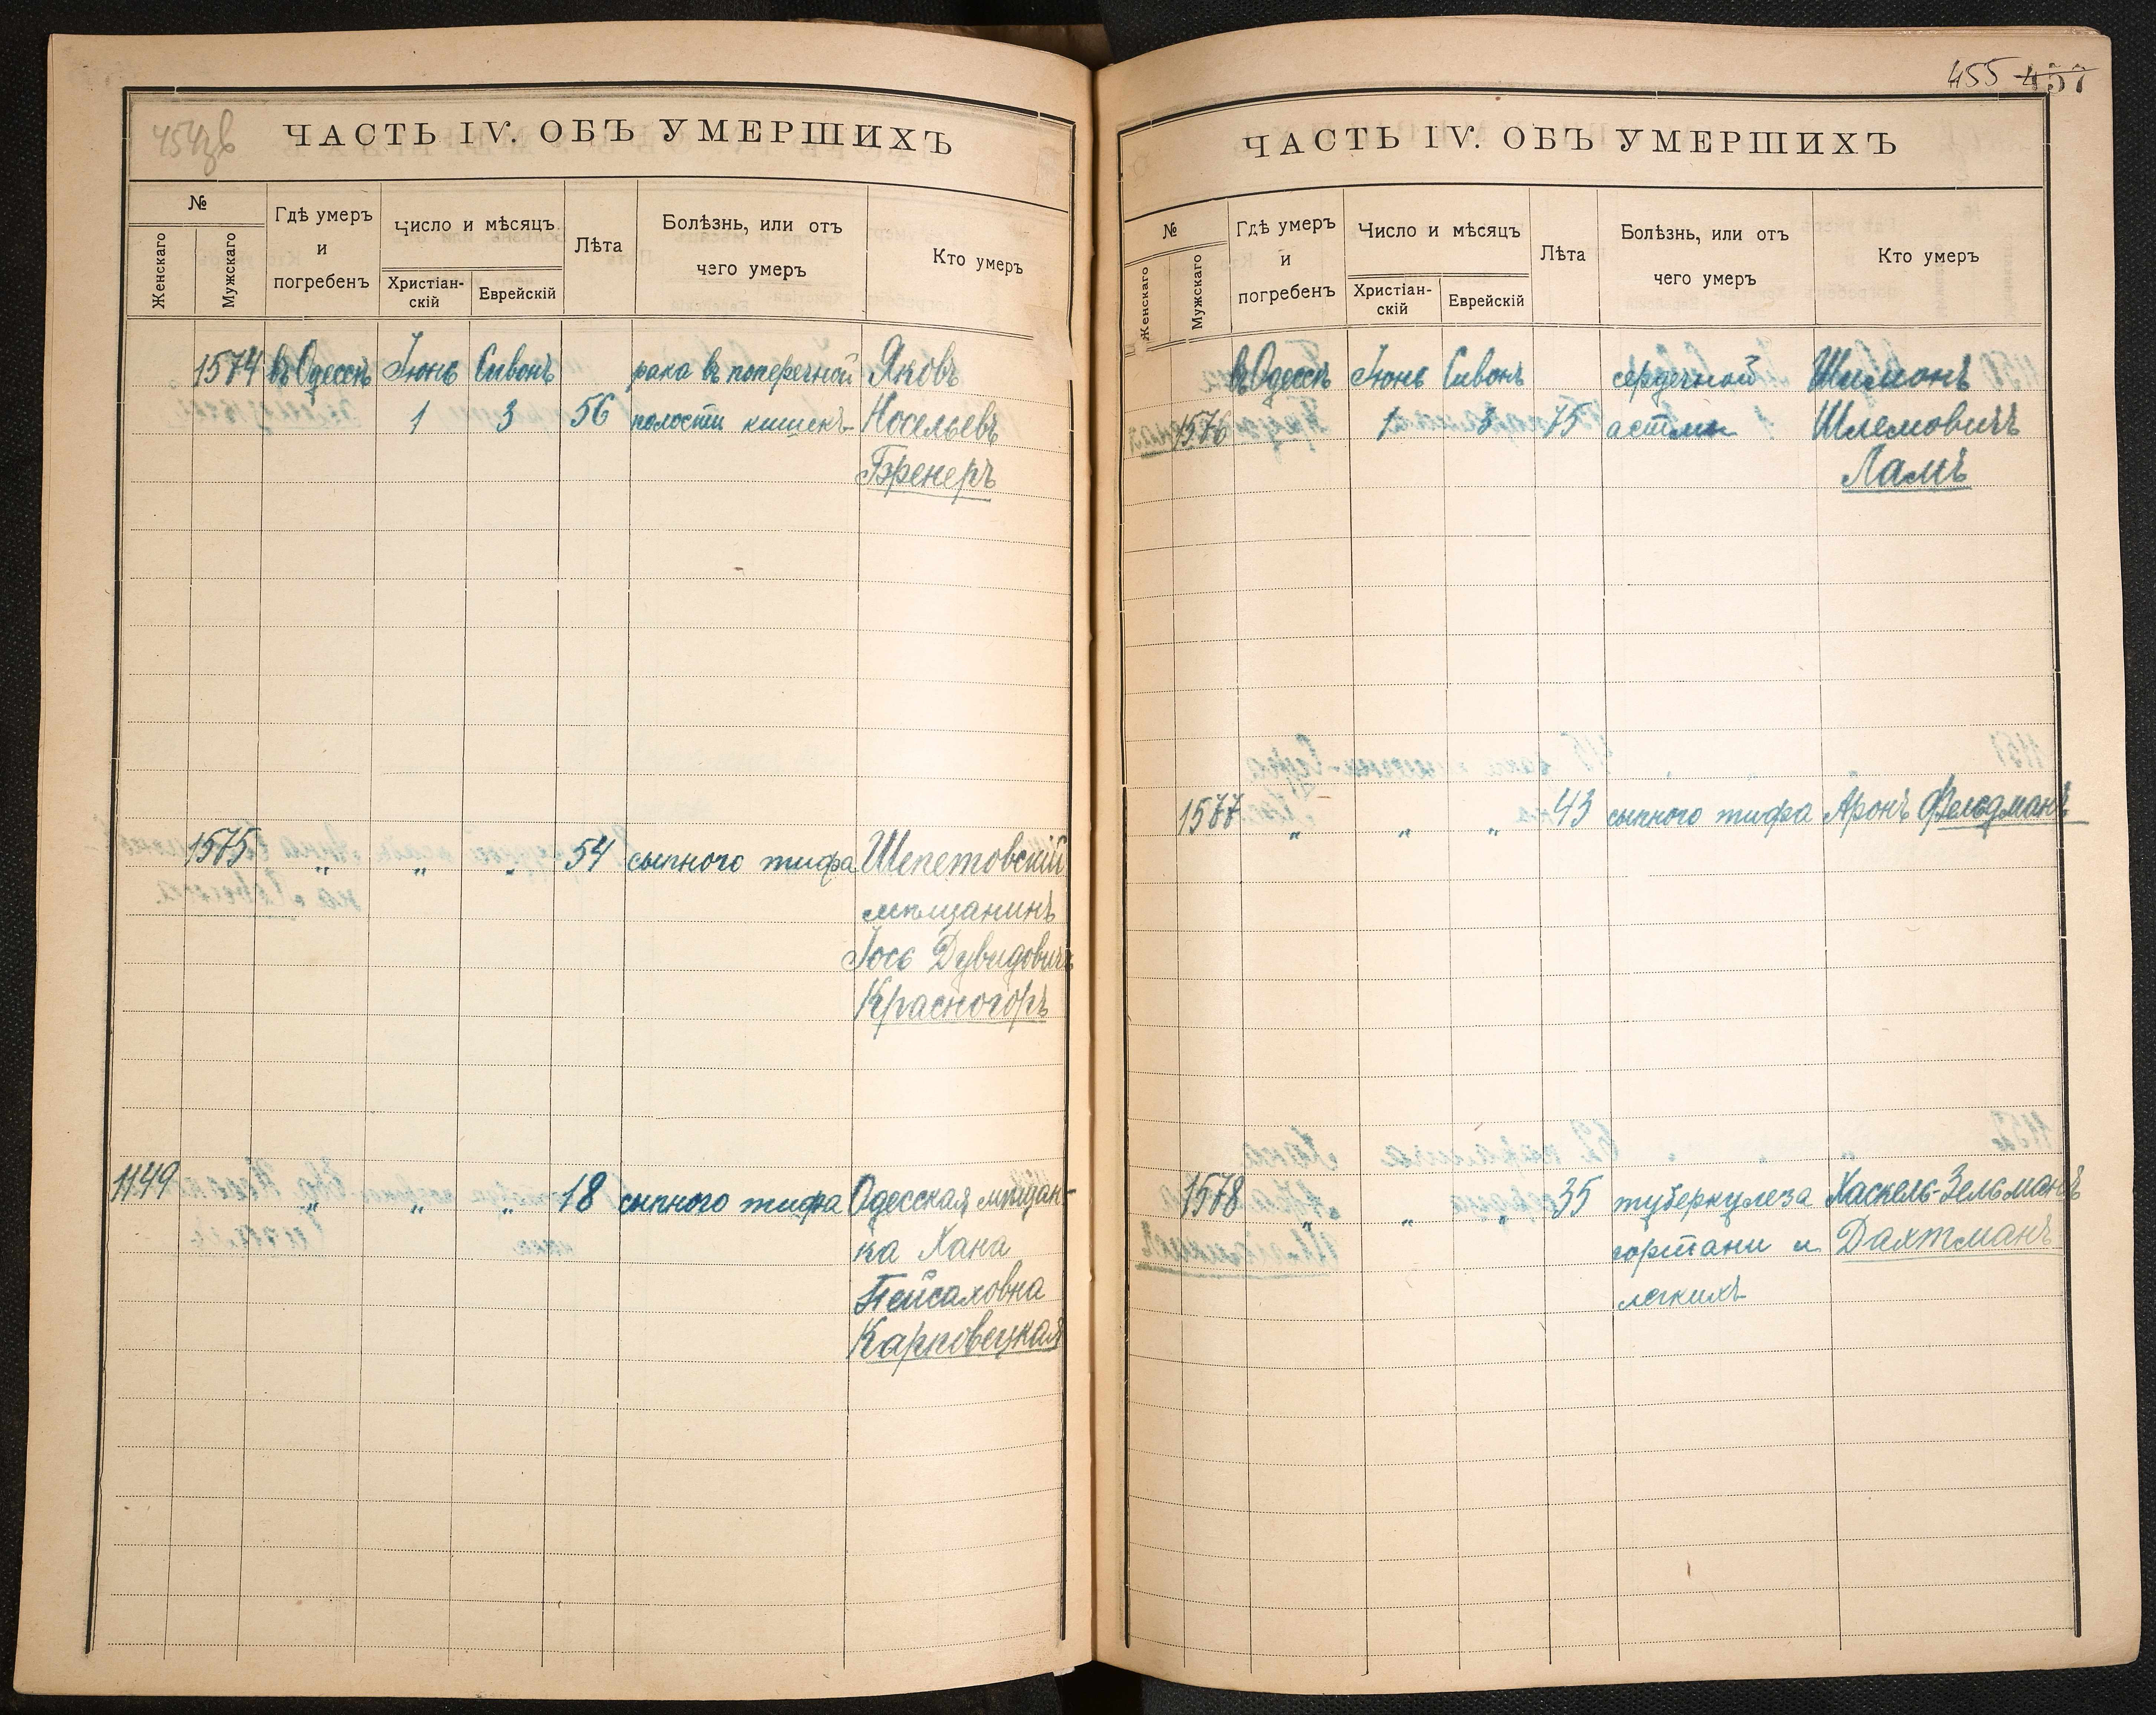 454зв
ЧАСТЬ IV. ОБЪ УМЕРШИХЪ
№
Женскаго
Мужскаго
Гдѣ умеръ
и
погребенъ
Число и мѣсяцъ
Христіан-
скій
Еврейскій
Лѣта
Болѣзнь, или отъ
чего умеръ
Кто умеръ
1574 въ Одессѣ Іюнь Сивонъ рака въ поперечной Яковъ
1 3 56 полости кишекъ Носельевъ
Бренеръ
1575 „ „ „ 54 сыпного тифа Шепетовскій
мѣщанинъ
Іось Дувидовичъ
Красногоръ
1149 „ „ „ 18 сыпного тифа Одесская мѣщан-
ка Хана
Пейсаховна
Карповецкая
455 457
ЧАСТЬ IV. ОБЪ УМЕРШИХЪ
№
Женскаго
Мужскаго
Гдѣ умеръ
и
погребенъ
Число и мѣсяцъ
Христіан-
скій
Еврейскій
Лѣта
Болѣзнь, или отъ
чего умеръ
Кто умеръ
въ Одессѣ Іюнь Сивонъ сердечной Шимонъ
1576 1 3 75 астмы Шлемовичъ
Ламъ
1577 „ „ „ 43 сыпного тифа Аронъ Фельдманъ
1578 „ „ „ 35 туберкулеза Хаскель-Зельманъ
гортани и Дахтманъ
легкихъ